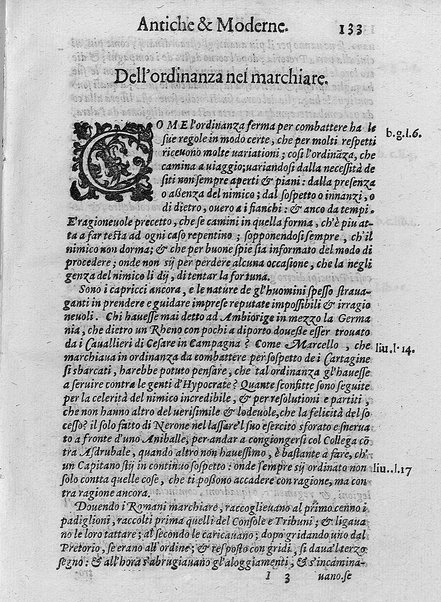 Antiche & Moderne. 133
Dell'ordinanza nel marchiare.
COME l'ordinanza ferma per combattere ha le
sue regole in modo certe, che per molti respetti
riceuono molte variationi; così l'ordināza, che
camina a viaggio; uariandosi dalla necessità de
siti non sempre aperti & piani: dalla presenza
o assenza del nimico; dal sospetto o innanzi, o
di dietro, ouero a i fianchi: & anco da tempi.
b.g.l.6.
E ragioneuole precetto, che se camini in quella forma, ch'è piu at-
ta a far testa ad ogni caso repentino; sopponendosi sempre, ch'il
nimico non dorma; & che per buone spie sia informato del modo di
procedere; onde non sij per perdere alcuna occasione, che la negli
genza del nimico li dij, di tentar la fortuna.
Sono i capricci ancora, e le nature de gl'huomini spesso straua-
ganti in prendere e guidare imprese reputate impossibili & irragio
neuoli. Chi hauesse mai detto ad Ambiorige in mezzo la Germa
nia, che dietro un Rheno con pochi a diporto douesse esser trouato
da i Cauallieri di Cesare in Campagna? Come Marcello, che
marchiaua in ordinanza da combattere per sospetto de i Cartagine
si sbarcati, harebbe potuto pensare, che tal ordinanza gl'hauesse
liu.l.14.
a seruire contra le genti d'Hypocrate? Quante sconfitte sono seguite
per la celerità del nimico incredibile, & per resolutioni e partiti,
che non hanno altro del uerisimile & lodeuole, che la felicità del so
cesso? il solo fatto di Nerone nel lassare 'l suo esercito sforato e sneruа
to a fronte d'uno Aniballe, per andar a congiongersi col Collega cō
tra Asdrubale, quando altro non hauessimo, è bastante a fare, ch'
un Capitano stij in continuo sospetto: onde sempre sij ordinato non
liu..l.17
solo contta quelle cose, che ti possono accadere con ragione, ma con
tra ragione ancora.
Douendo i Romani marchiare, raccoglieuano al primo cenno i
padiglioni, raccolti prima quelli del Console e Tribuni; & ligaua
no le loro tattare; al secondo le caricauano; dopo gridando uno dal
Pretorio, se erano all'ordine; & resposto con gridi, si daua'l terzo
segno: & all'hora s'abrugiauano gl'aloggiamenti, & s'incamina-
I 3 uano.se